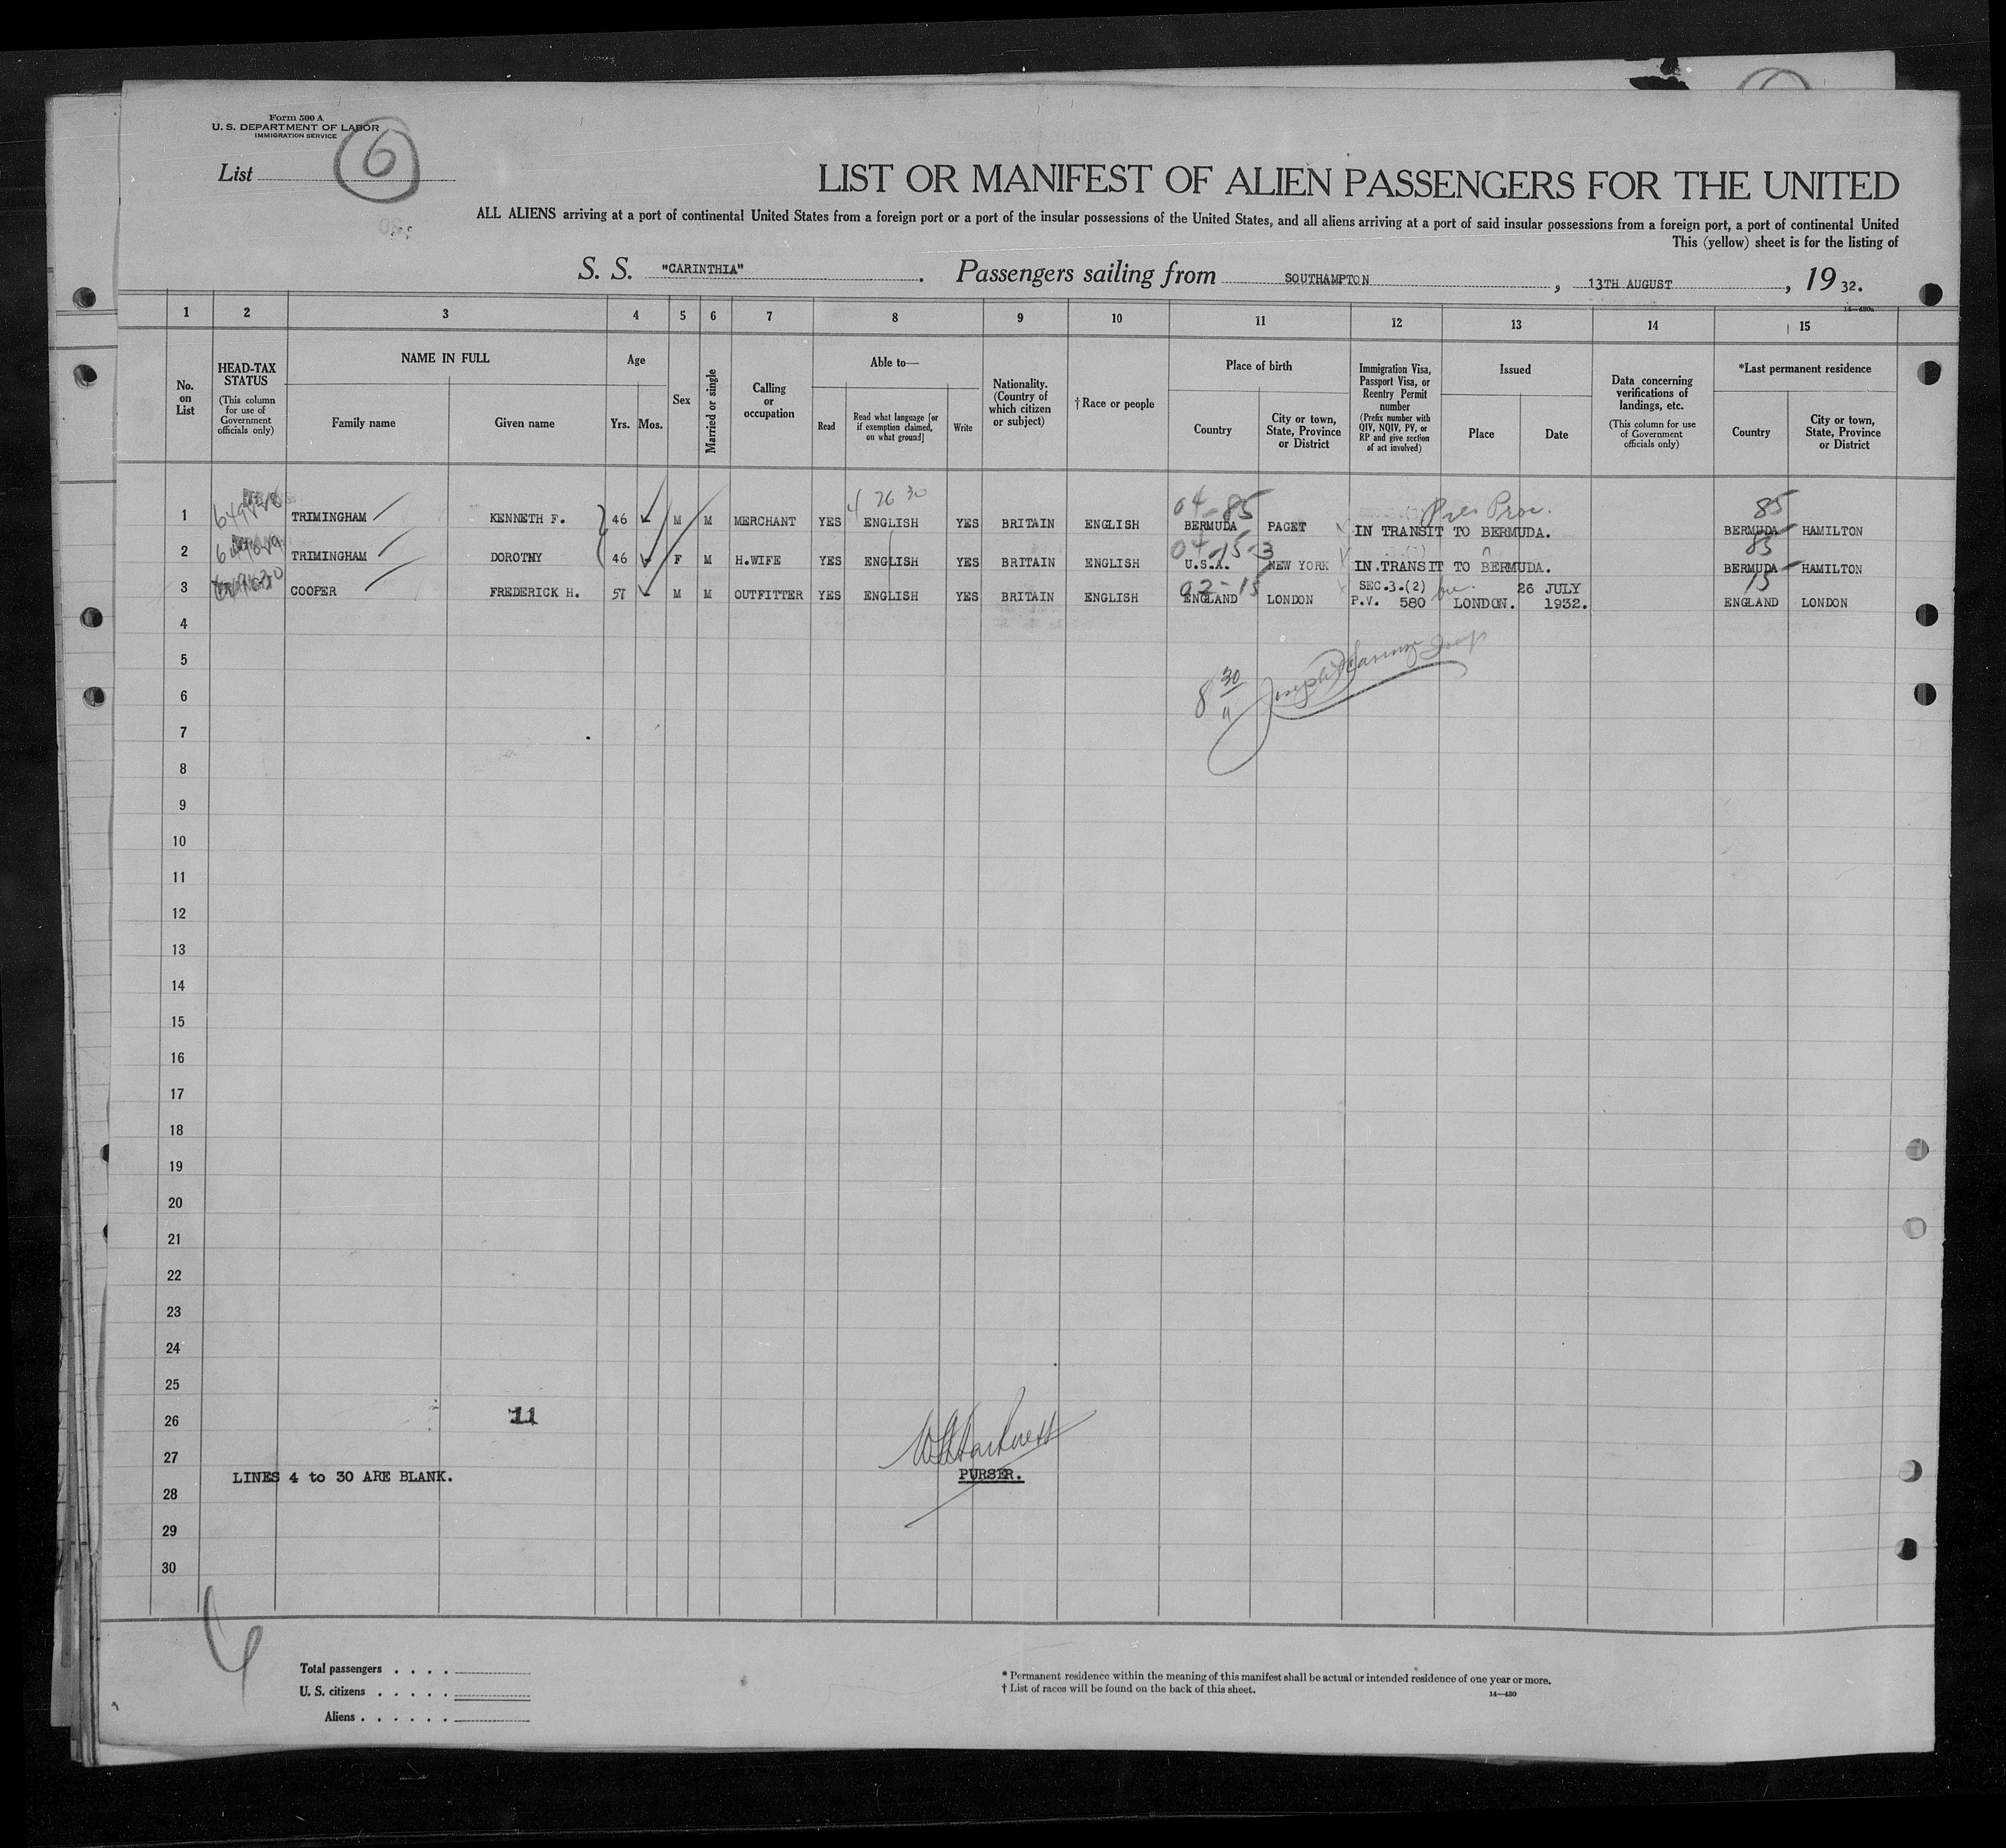 Form 500 A
U. S. DEPARTMENT OF LABOR
IMMIGRATION SERVICE
List 6
LIST OR MANIFEST OF ALIEN PASSENGERS FOR THE UNITED
ALL ALIENS arriving at a port of continental United States from a foreign port or a port of the insular possessions of the United States, and all aliens arriving at a port of said insular possessions from a foreign port, a port of continental United
This (yellow) sheet is for the listing of
S. S. "CARINTHIA" . Passengers sailing from SOUTHAMPTON , 13TH AUGUST , 19 32.
14—430a
1 2 3 4 5 6 7 8 9 10 11 12 13 14 15
No. on List
HEAD-TAX STATUS
(This column for use of Government officials only)
NAME IN FULL
Family name
Given name
Age
Yrs. Mos.
Sex
Married or single
Calling or occupation
Able to—
Read
Read what language [or if exemption claimed, on what ground]
Write
Nationality. (Country of which citizen or subject)
† Race or people
Place of birth
Country
City or town, State, Province or District
Immigration Visa, Passport Visa, or Reentry Permit number
(Prefix number with QIV, NQIV, PV, or RP and give section of act involved)
Issued
Place
Date
Data concerning verifications of landings, etc.
(This column for use of Government officials only)
*Last permanent residence
Country
City or town, State, Province or District
26 30
04-85 Pres Proc. 85
1 TRIMINGHAM KENNETH F. 46 M M MERCHANT YES ENGLISH YES BRITAIN ENGLISH BERMUDA PAGET IN TRANSIT TO BERMUDA. BERMUDA HAMILTON
04-15-3 85
2 TRIMINGHAM DOROTHY 46 F M H.WIFE YES ENGLISH YES BRITAIN ENGLISH U.S.A. NEW YORK IN.TRANSIT TO BERMUDA. BERMUDA HAMILTON
02-15 SEC.3.(2) 26 JULY 15
3 COOPER FREDERICK H. 57 M M OUTFITTER YES ENGLISH YES BRITAIN ENGLISH ENGLAND LONDON P.V. 580 LONDON. 1932. ENGLAND LONDON
4
5
6
8 30
7
8
9
10
11
12
13
14
15
16
17
18
19
20
21
22
23
24
25
26 11
27
LINES 4 to 30 ARE BLANK. PURSER.
28
29
30
Total passengers . . . .
U. S. citizens . . . . .
Aliens . . . . . .
* Permanent residence within the meaning of this manifest shall be actual or intended residence of one year or more.
† List of races will be found on the back of this sheet.
14—430